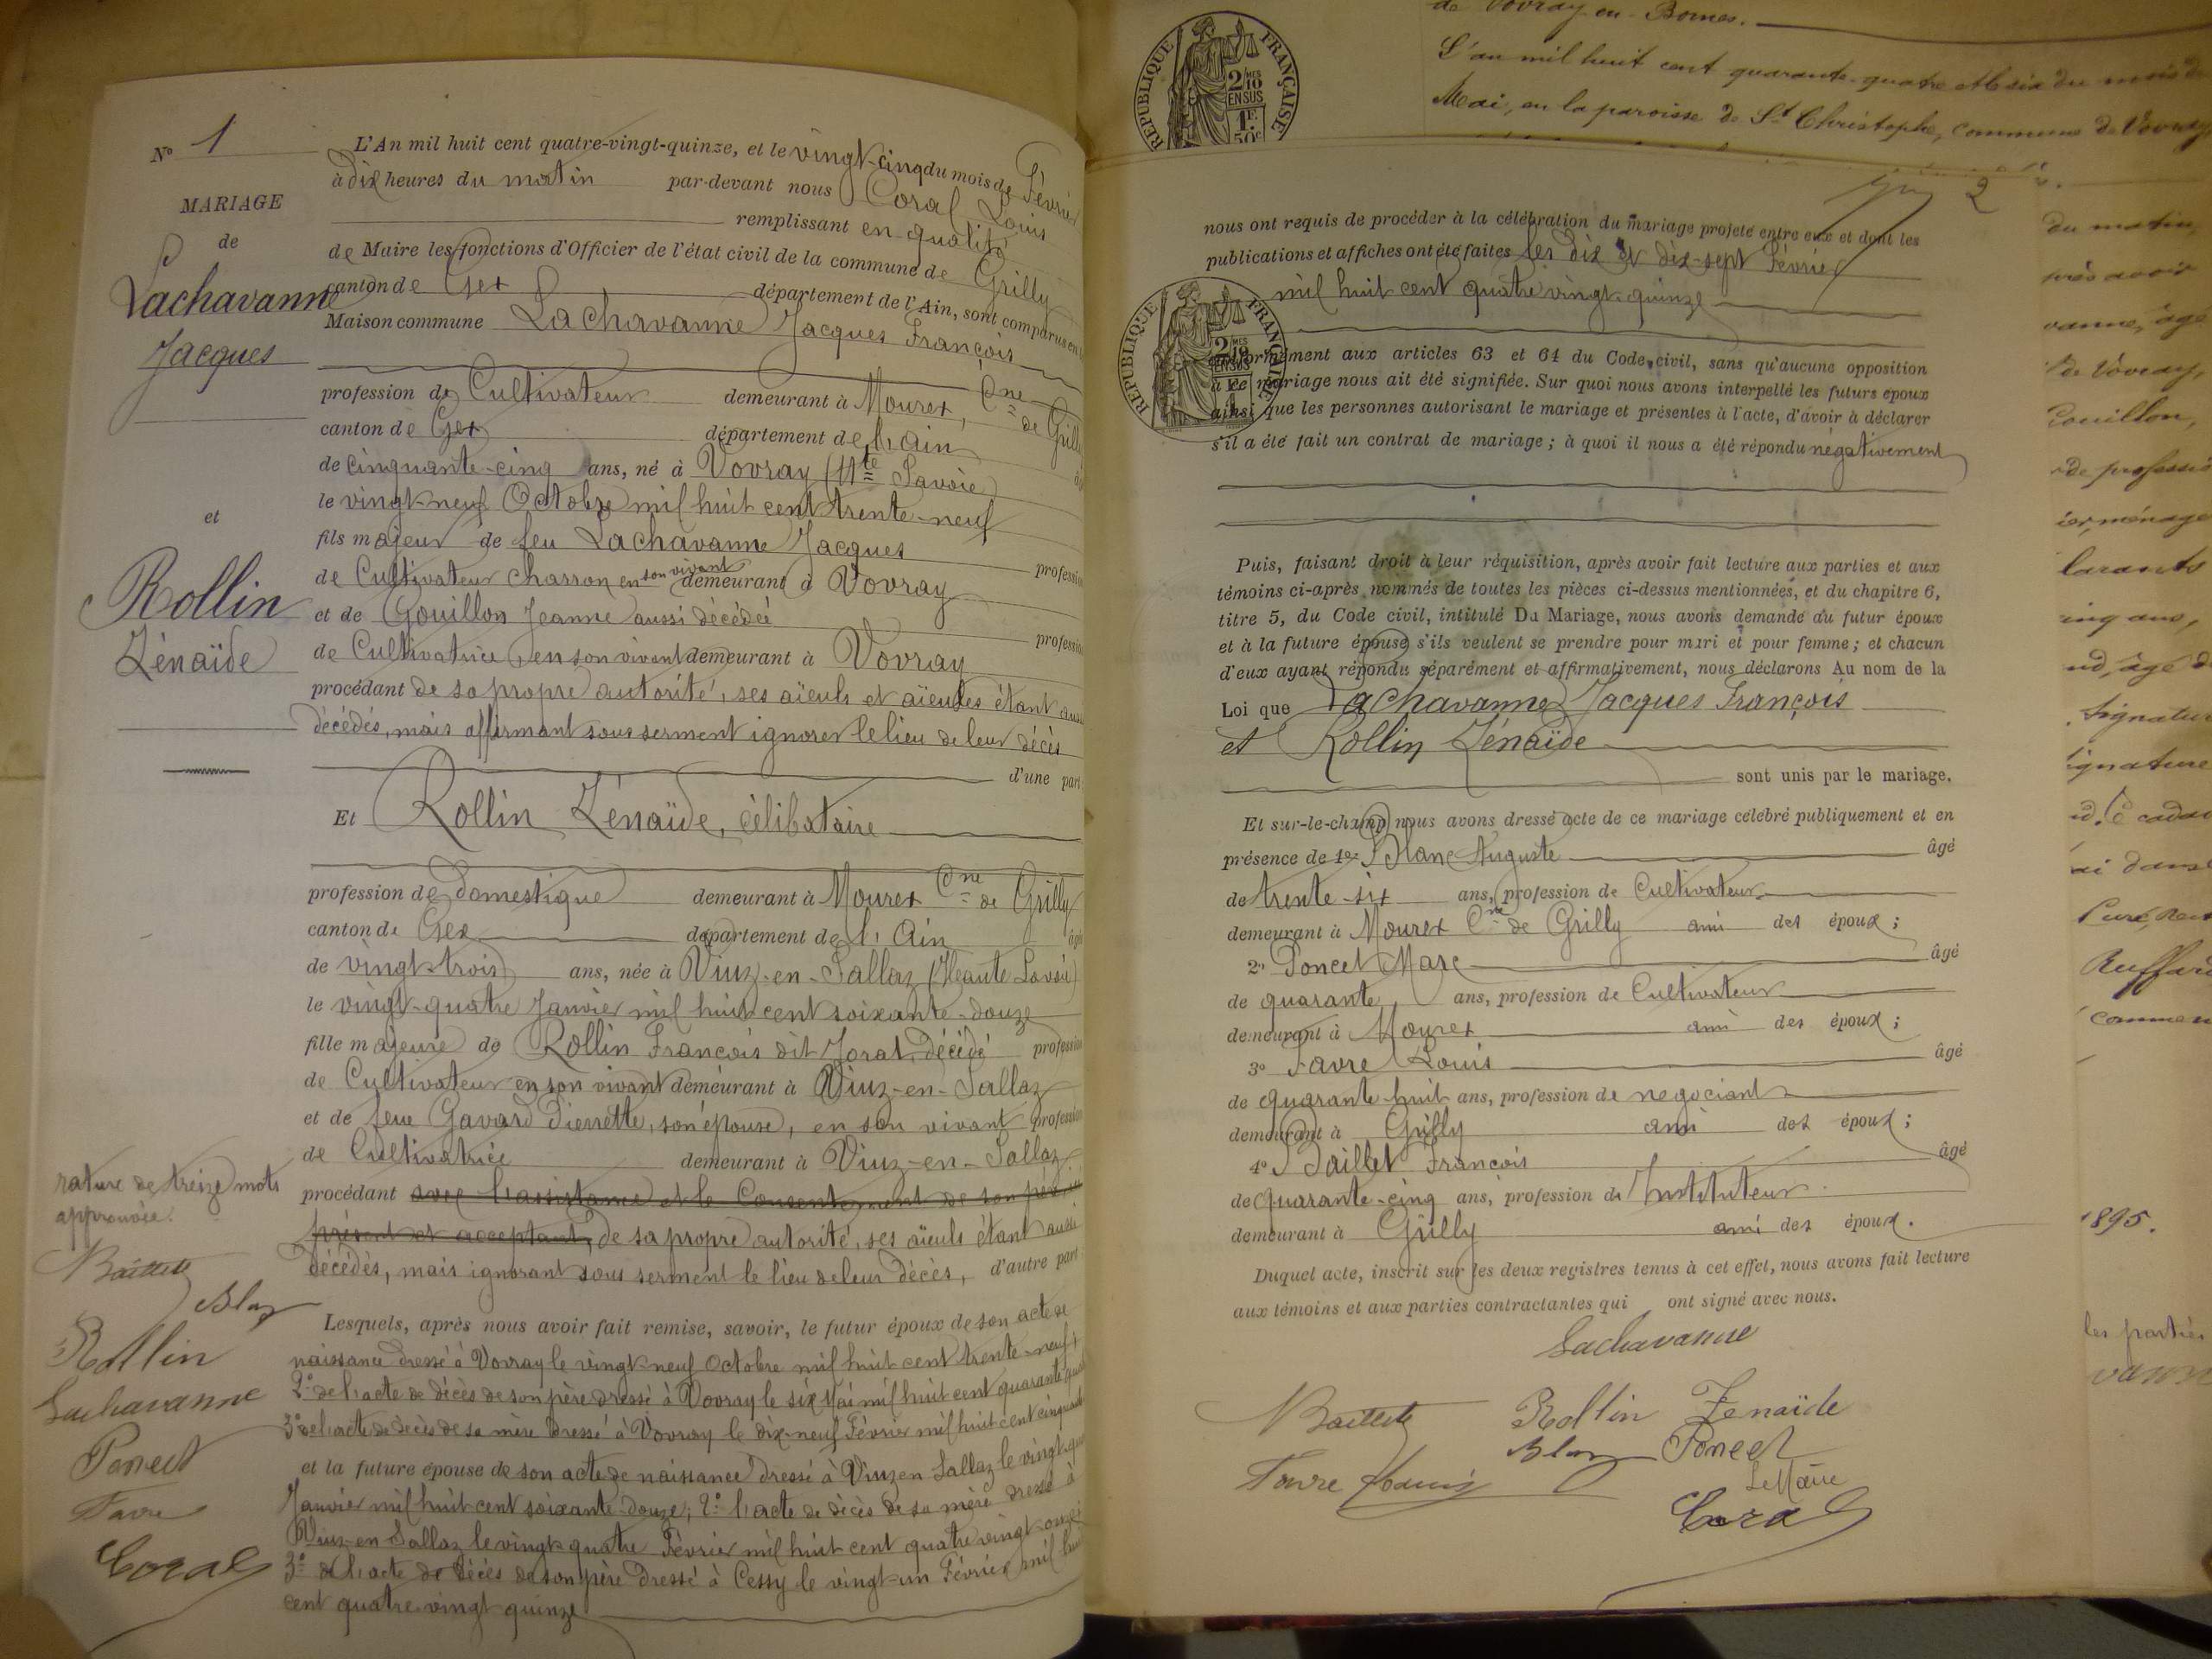 Nº 1
MARIAGE
de
Lachavanne
Jacques
et
Rollin
Zénaïde
L'An mil huit cent quatre-vingt-quinze, et le vingt-cinq du mois de Février
à dix heures du matin par-devant nous Coral Louis
remplissant en qualité
de Maire les fonctions d'Officier de l'état civil de la commune de Grilly
canton de Gex département de l'Ain, sont comparus en
Maison commune Lachavanne Jacques François
profession de Cultivateur demeurant à Mourex, Cne de Grilly
canton de Gex département de l'Ain
de cinquante-cinq ans, né à Vovray (Hte Savoie)
le vingt-neuf Octobre mil huit cent trente-neuf
fils majeur de feu Lachavanne Jacques profession
de Cultivateur charron en son vivant demeurant à Vovray
et de Gouillon Jeanne aussi décédée profession
de Cultivatrice, en son vivant demeurant à Vovray
procédant de sa propre autorité, ses aïeuls et aïeules étant aussi
décédés, mais affirmant sous serment ignorer le lieu de leur décès
d'une part
Et Rollin Zénaïde, célibataire
profession de domestique demeurant à Mourex Cne de Grilly
canton de Gex département de l'Ain âgée
de vingt-trois ans, née à Viuz-en-Sallaz (Haute Savoie)
le vingt-quatre Janvier mil huit cent soixante-douze
fille majeure de Rollin François dit Jorat, décédé profession
de Cultivateur en son vivant demeurant à Viuz-en-Sallaz
et de feue Gavard Pierrette, son épouse, en son vivant profession
de Cultivatrice demeurant à Viuz-en-Sallaz
procédant avec l'assistance et le Consentement de son père ici
présent et acceptant, de sa propre autorité, ses aïeuls étant aussi
décédés, mais ignorant sous serment le lieu de leur décès, d'autre part
Lesquels, après nous avoir fait remise, savoir, le futur époux de son acte de
naissance dressé à Vovray le vingt-neuf Octobre mil huit cent trente-neuf
2º de l'acte de décès de son père dressé à Vovray le six Mai mil huit cent quarante quatre
3º de l'acte de décès de sa mère dressé à Vovray le dix-neuf Février mil huit cent cinquante
et la future épouse de son acte de naissance dressé à Viuz en Sallaz le vingt-quatre
Janvier mil huit cent soixante-douze; 2º l'acte de décès de sa mère dressé à
Viuz-en-Sallaz le vingt-quatre Février mil huit cent quatre vingt-onze
3º de l'acte de décès de son père dressé à Cessy le vingt-un Février mil huit
cent quatre-vingt quinze
rature de treize mots
approuvée.
Baillet
Blanc
Rollin
Lachavanne
Poncet
Favre
Coral
REPUBLIQUE FRANÇAISE
2/10 MES
EN SUS
1F
50c
de Vovray en Bornes.
L'an mil huit cent quarante-quatre et le six du mois de
Mai, en la paroisse de St Christophe, commune de Vovray
2
nous ont requis de procéder à la célébration du mariage projeté entre eux et dont les
publications et affiches ont été faites les dix et dix-sept Février
mil huit cent quatre vingt-quinze
REPUBLIQUE FRANÇAISE
conformément aux articles 63 et 64 du Code civil, sans qu'aucune opposition
à ce mariage nous ait été signifiée. Sur quoi nous avons interpellé les futurs époux
ainsi que les personnes autorisant le mariage et présentes à l'acte, d'avoir à déclarer
s'il a été fait un contrat de mariage; à quoi il nous a été répondu négativement
Puis, faisant droit à leur réquisition, après avoir fait lecture aux parties et aux
témoins ci-après nommés de toutes les pièces ci-dessus mentionnées, et du chapitre 6,
titre 5, du Code civil, intitulé Du Mariage, nous avons demandé au futur époux
et à la future épouse s'ils veulent se prendre pour mari et pour femme; et chacun
d'eux ayant répondu séparément et affirmativement, nous déclarons Au nom de la
Loi que Lachavanne Jacques François
et Rollin Zénaïde
sont unis par le mariage.
Et sur-le-champ nous avons dressé acte de ce mariage célébré publiquement et en
présence de 1er Blanc Auguste âgé
de trente-six ans, profession de Cultivateur
demeurant à Mourex Cne de Grilly ami des époux;
2º Poncet Marc âgé
de quarante ans, profession de Cultivateur
demeurant à Mourex ami des époux;
3º Favre Louis âgé
de quarante-huit ans, profession de négociant
demeurant à Grilly ami des époux;
4º Baillet François âgé
de quarante-cinq ans, profession de Instituteur
demeurant à Grilly ami des époux.
Duquel acte, inscrit sur les deux registres tenus à cet effet, nous avons fait lecture
aux témoins et aux parties contractantes qui ont signé avec nous.
Lachavanne
Baillet Rollin Zenaïde
Blanc Poncet
Favre Louis Le Maire
Coral
du matin,
près avoir
vanne, âgé
de Vovray,
Gouillon,
de professio
ménage
larants
ans,
âgé de
signature
signature
cadav
Curé, Rect
Ruffard
commen
1895.
les parties